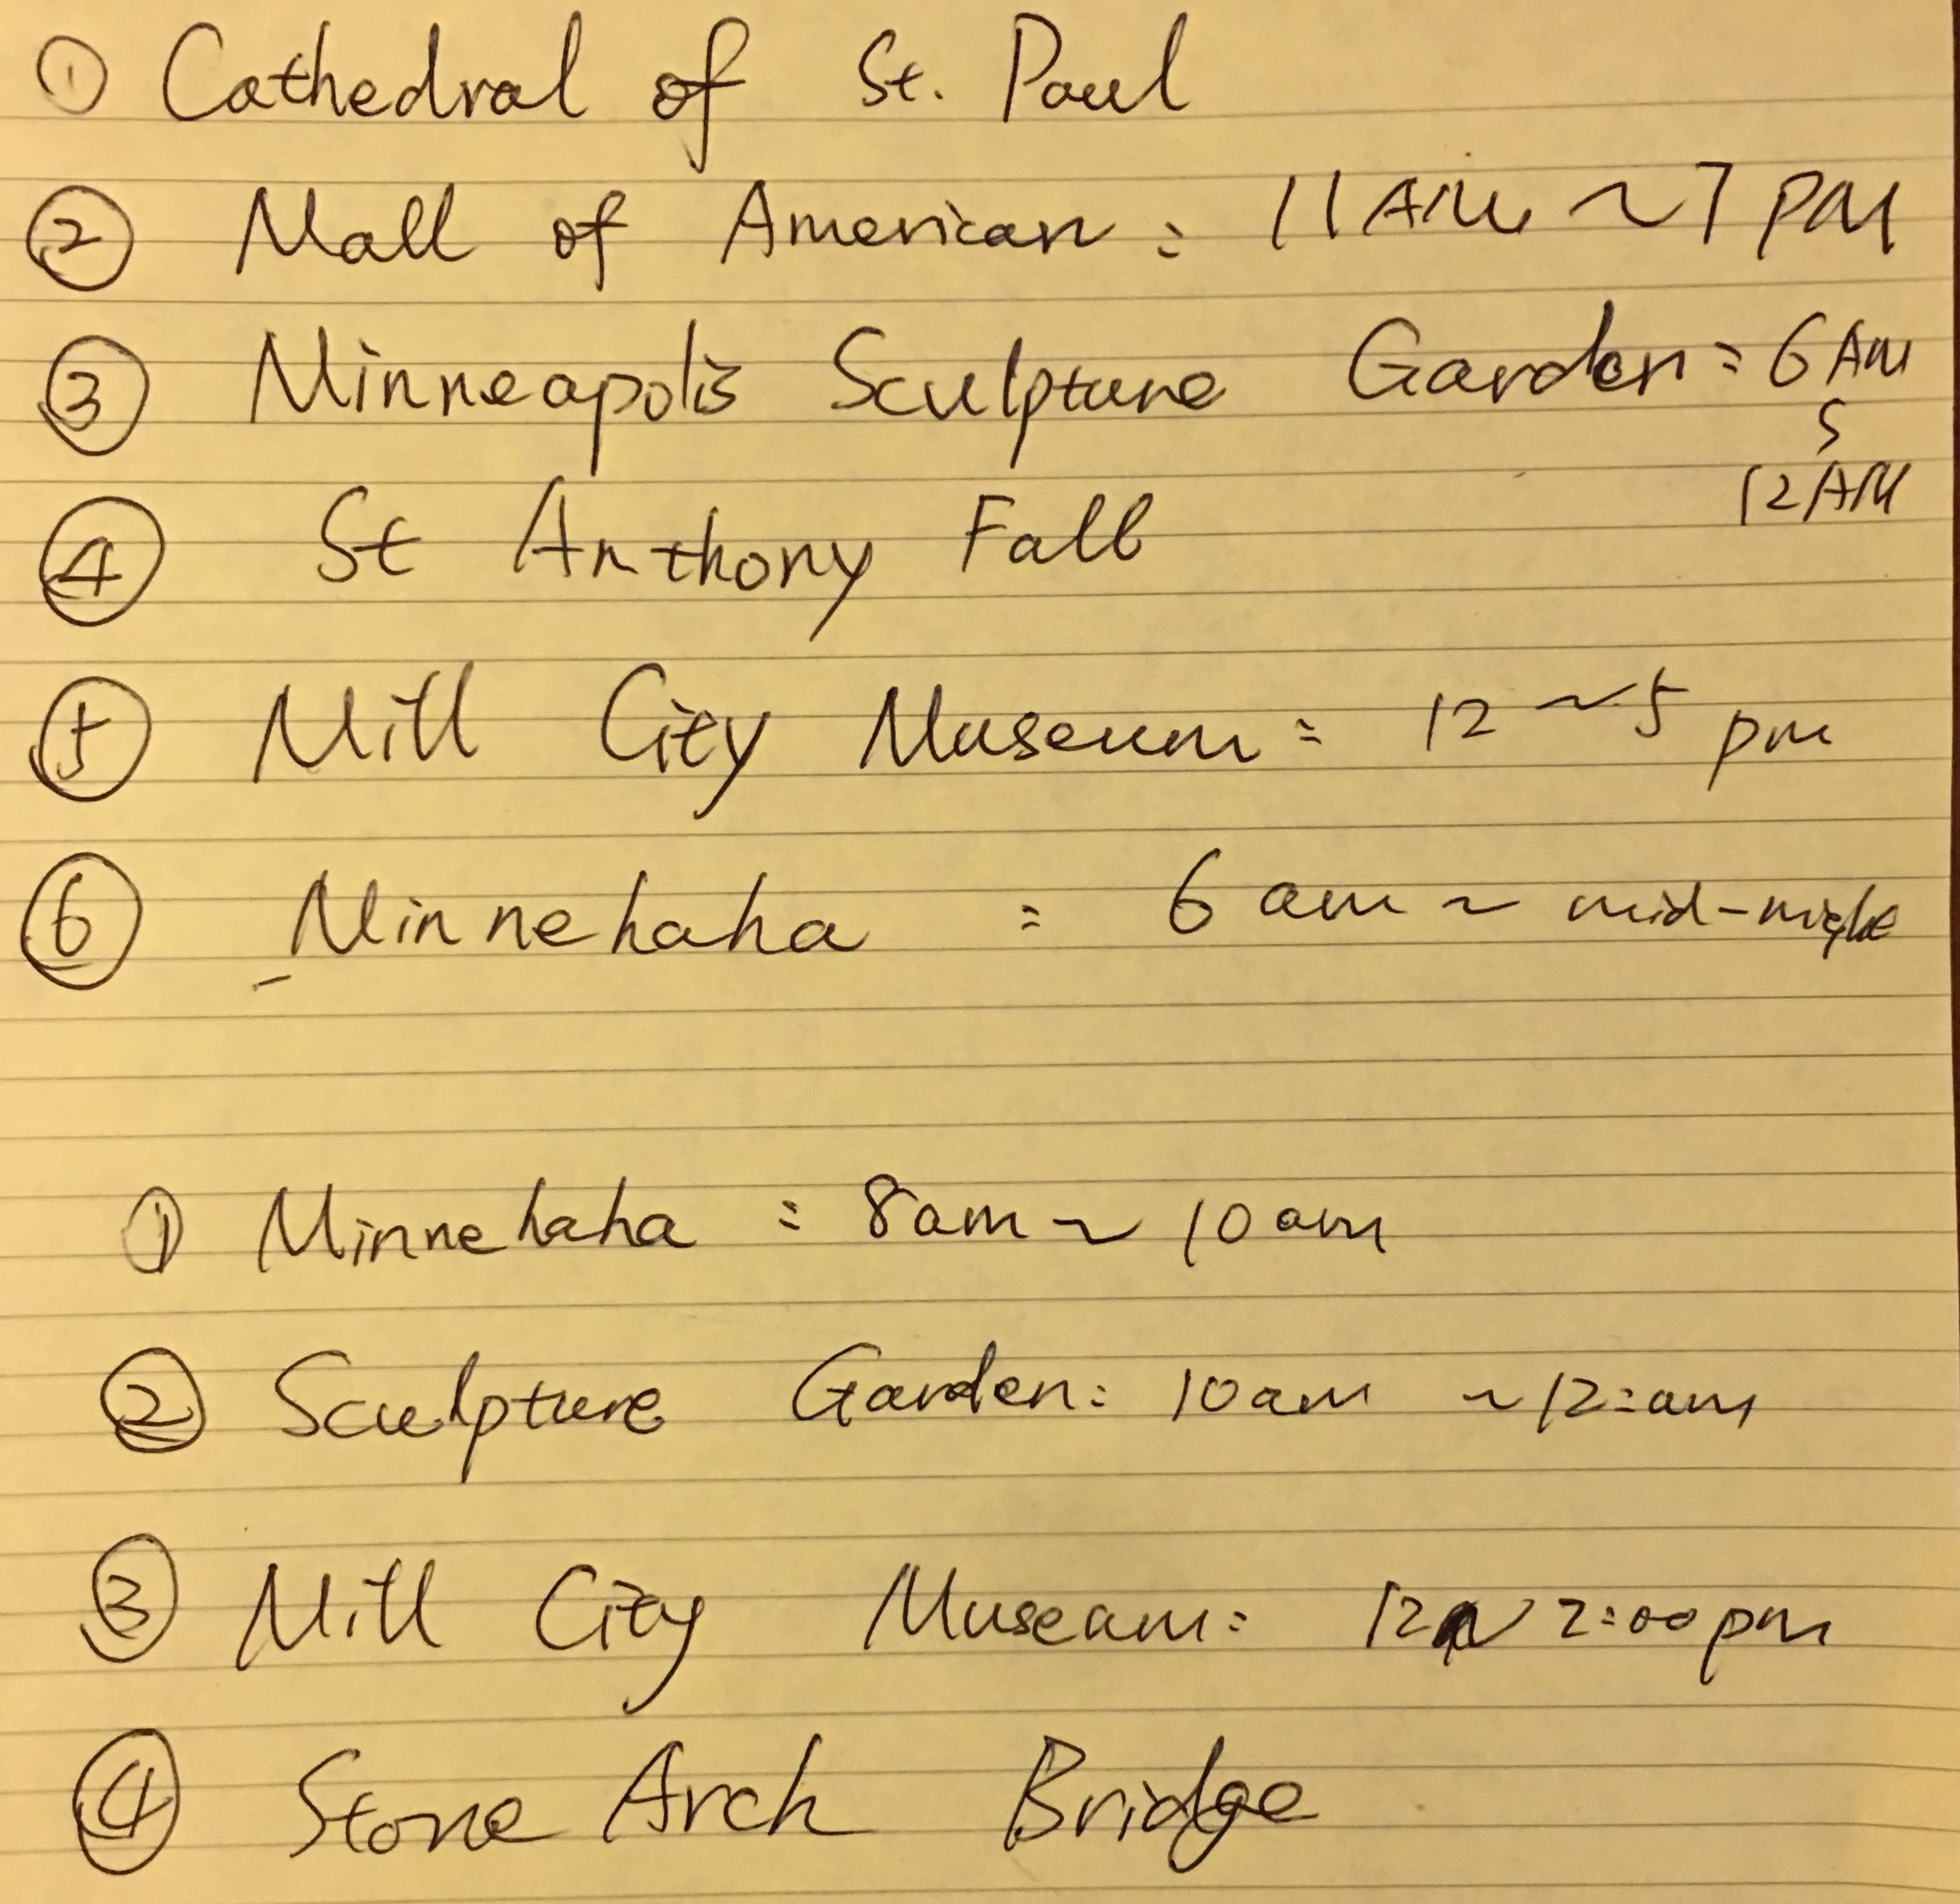 ① Cathedral of St. Paul
② Mall of American : 11 AM ~ 7 PM
③ Minneapolis Sculpture Garden : 6 AM
~
12 AM
④ St Anthony Fall
⑤ Mill City Museum : 12 ~ 5 pm
⑥ Minnehaha : 6 am ~ mid-night
① Minnehaha : 8am ~ 10 am
② Sculpture Garden : 10am ~ 12:am
③ Mill City Museum : 12 ~ 2:00 pm
④ Stone Arch Bridge